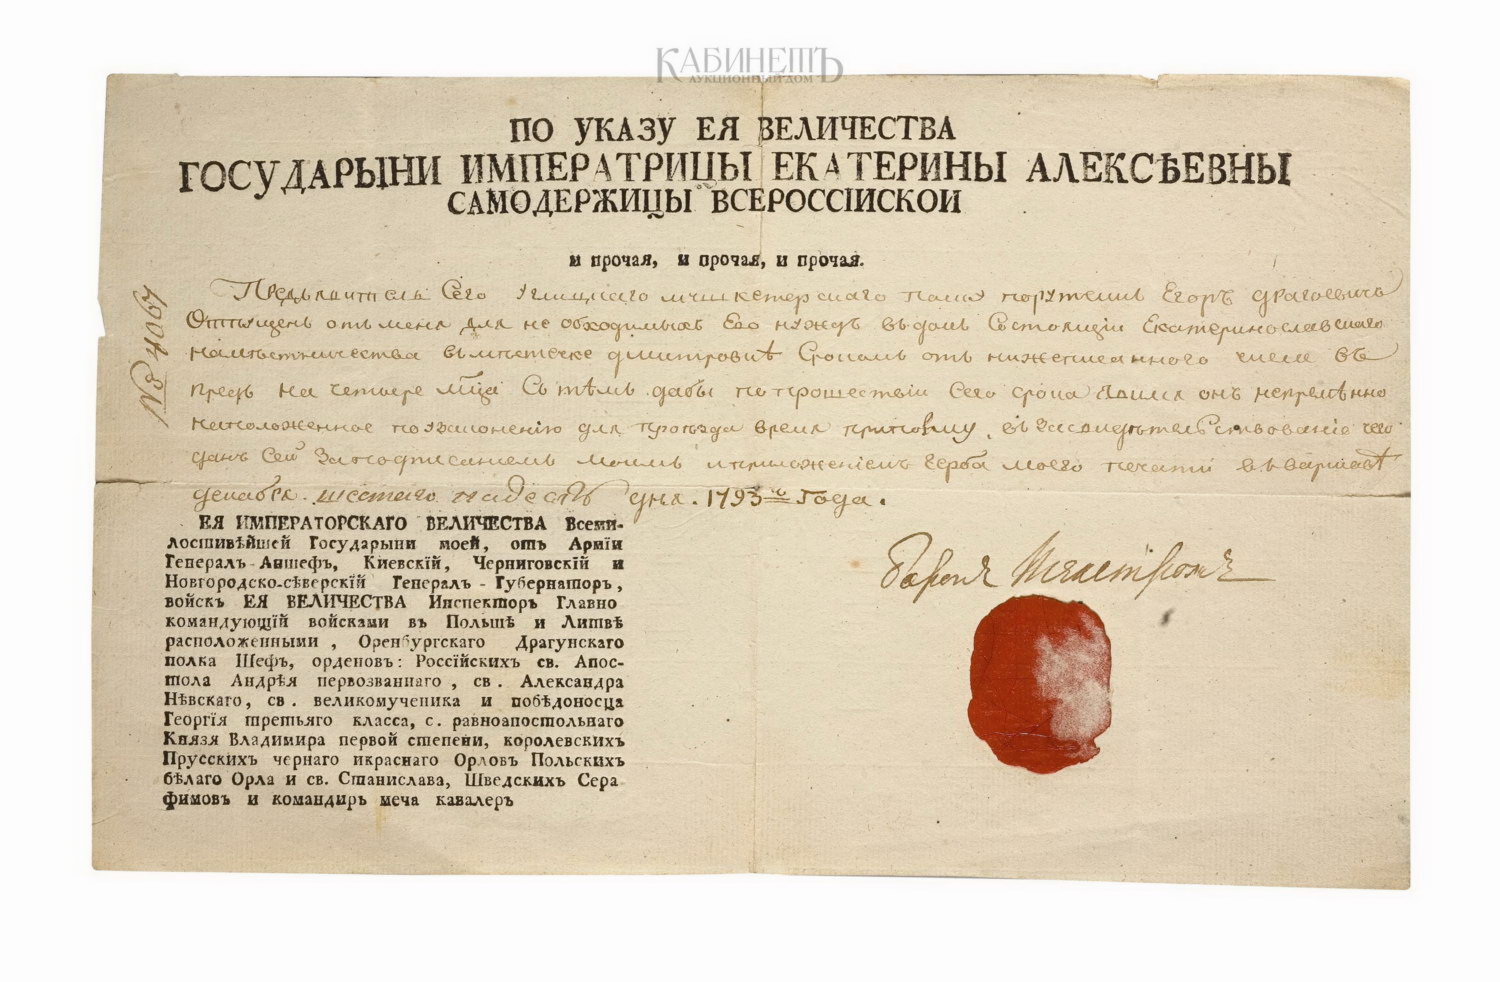 КАБИНЕТЪ
АУКЦИОННЫЙ ДОМ
ПО УКАЗУ ЕЯ ВЕЛИЧЕСТВА
ГОСУДАРЫНИ ИМПЕРАТРИЦЫ ЕКАТЕРИНЫ АЛЕКСѢЕВНЫ
САМОДЕРЖИЦЫ ВСЕРОССІИСКОИ
и прочая, и прочая, и прочая.
№ 4067
Предъявитель Сего Углицкаго мушкетерскаго полку порутчикъ Егоръ Драгоевичь
Отпущенъ отъ меня для не обходимыхъ Его нуждъ въ домъ Состоящій Екатеринославскаго
намѣстничества въ местечке Дмитровкѣ Срокомъ отъ нижеписаннаго числа въ
предь на четыре мца Съ тѣмъ дабы по прошествіи Сего срока явился онъ непремѣнно
на положенное по узаконенію для проезда время къ полку, въ засвидѣтельствованіе чего
данъ Сей За подписаніемъ моимъ и приложеніемъ герба моего печати въ Варшавѣ
декабря шестаго надесять дня. 1793го Года.
ЕЯ ИМПЕРАТОРСКАГО ВЕЛИЧЕСТВА Всеми-
лостивѣйшей Государыни моей, отъ Арміи
Генералъ-Аншефъ, Киевскій, Черниговскій и
Новгородско-сѣверскій Генералъ-Губернаторъ,
войскъ ЕЯ ВЕЛИЧЕСТВА Инспекторъ Главно
командующій войсками въ Польшѣ и Литвѣ
расположенными, Оренбургскаго Драгунскаго
полка Шефъ, орденовъ: Россійскихъ св. Апос-
тола Андрѣя первозваннаго, св. Александра
Нѣвскаго, св. великомученика и побѣдоносца
Георгія третьяго класса, с. равноапостольнаго
Князя Владимира первой степени, королевскихъ
Прусскихъ чернаго икраснаго Орловъ Польскихъ
бѣлаго Орла и св. Станислава, Шведскихъ Сера
фимовъ и командиръ меча кавалеръ
Баронъ Игелстромъ